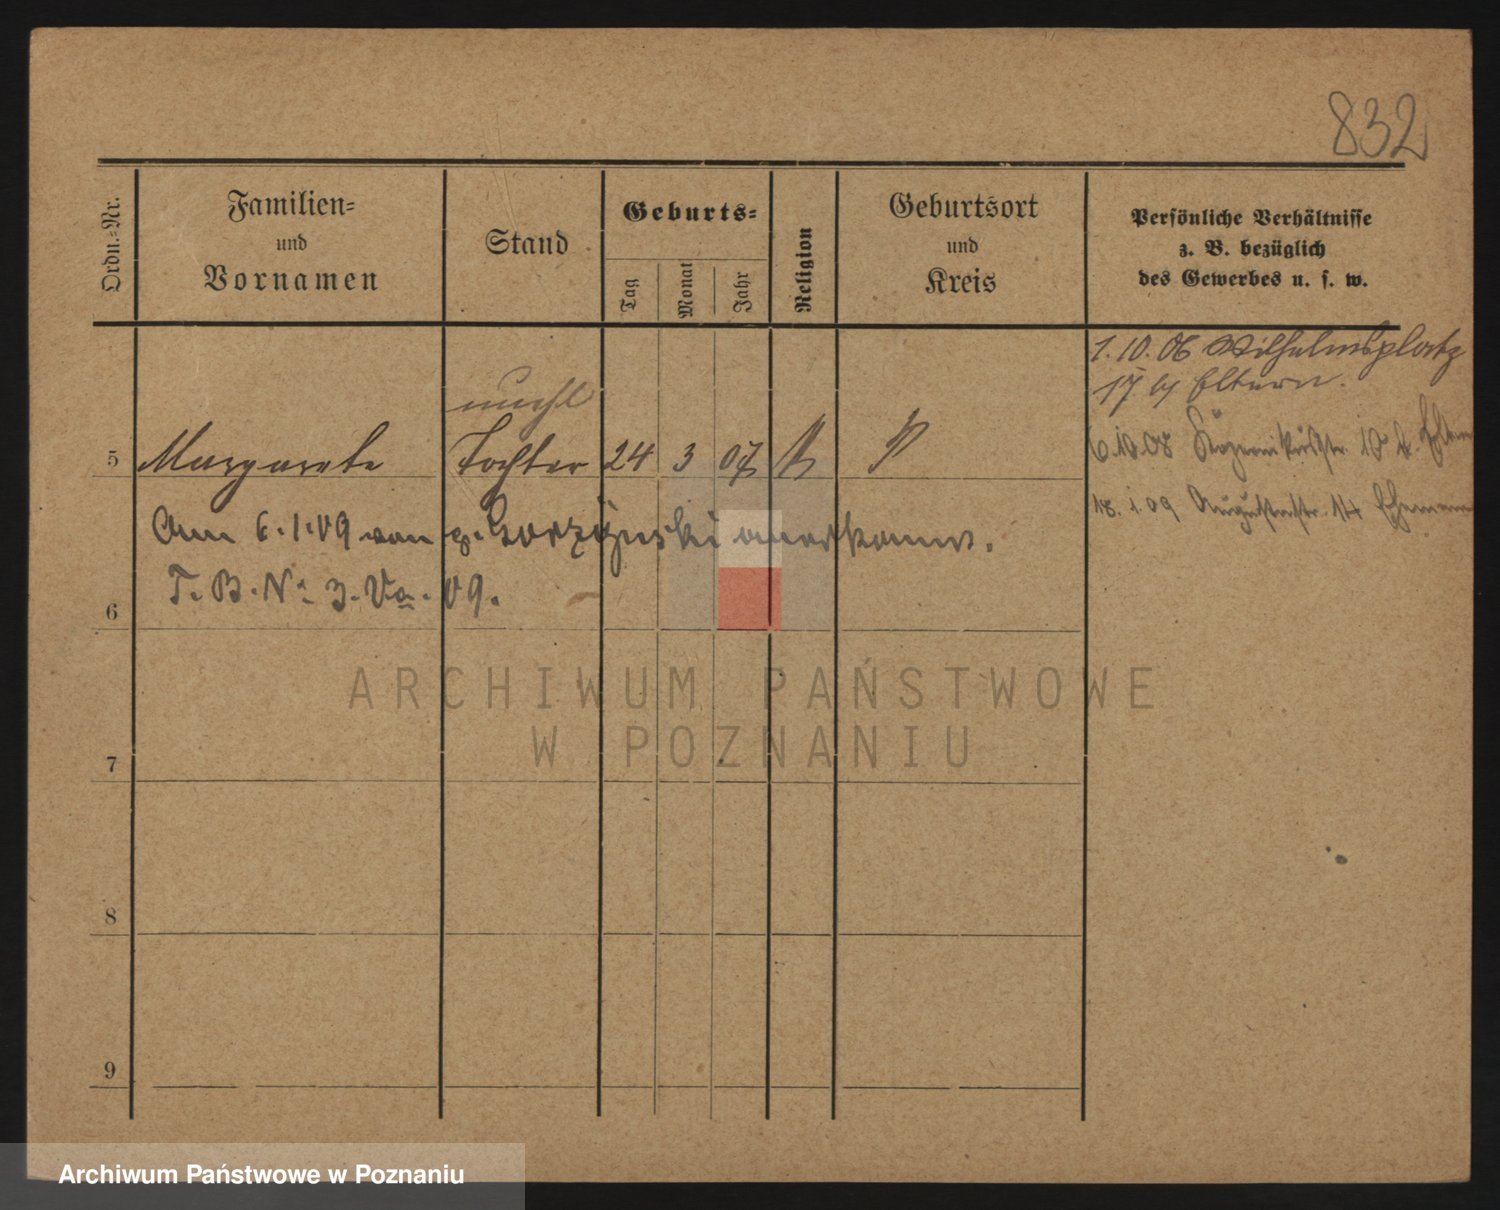 832
Ordn.-Nr.
Familien-
und
Vornamen
Stand
Geburts-
Tag
Monat
Jahr
Religion
Geburtsort
und
Kreis
Persönliche Verhältnisse
z. B. bezüglich
des Gewerbes u. s. w.
1. 10. 06 Wilhelmsplatz
17 b/ Eltern.
6.10.08
18. 1. 09 Auguststr. 14 Ehemann
unehl
5 Margarete Tochter 24 3 07 K P
Am 6.1.09 von p. Gorzynski anerkannt.
6 T. B. No 3. Va. 09.
7
8
9
ARCHIWUM PAŃSTWOWE
W POZNANIU
Archiwum Państwowe w Poznaniu